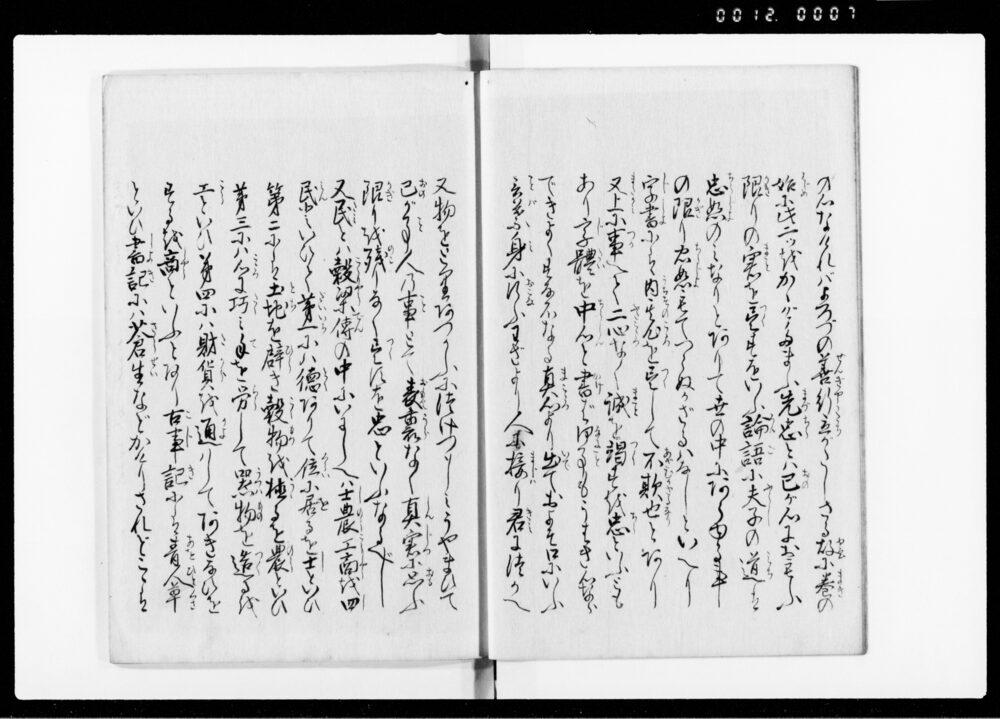 0012.0007
がたなければよろづの善行立がたしさる故に巻の
始に此二ツをかゝげたまふ先忠とは己が心におもふ
限りの実を尽すをいふ論語に夫子の道は
忠恕のみなりとありて世の中にあらゆる事
の限り忠恕もてつらぬかざるはなしといへり
字書にも内其心を尽して不欺也とあり
又上に事へて二心なく誠を竭すを忠といふとも
あり字體を中心と書ば
できよりするならぬ真心より出ておよそ口にいふ
言葉身に行ふわざより人に接り君につかへ
又物ときあつしみにつけつゝしみうやまひて
己がうへ人の事とて表裏なく真実に思ふ
限りを残りなく尽すを忠といふなるべし
又民とは穀梁傳の中にいにしへは士農工商を四
民といひて第一には徳ありて位に居るを士といひ
第二には土地を辟き穀物を植るを農といひ
第三には心に巧み手を労して器物を造るを
工といひ第四には財貨を通はしてあきなひを
するを商といふとあり古事記には青人草
といひ書記には蒼生などかけりされどこゝは